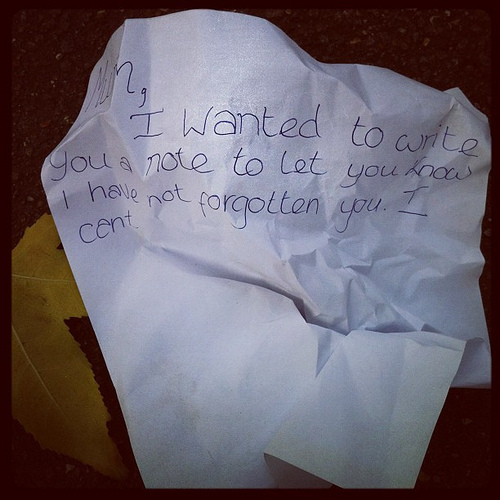 Mum,
I wanted to write
you a note to let you know
I have not forgotten you. I
cent